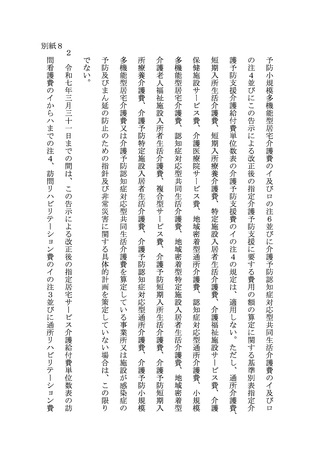 別紙８
予防小規模多機能型居宅介護費のイ及びロの注６並びに介護予防認知症対応型共同生活介護費のイ及びロ
の注４並びにこの告示による改正後の指定介護予防支援に要する費用の額の算定に関する基準別表指定介
護予防支援介護給付費単位数表の介護予防支援費のイの注４の規定は、適用しない。ただし、通所介護費、
短期入所生活介護費、短期入所療養介護費、特定施設入居者生活介護費、介護福祉施設サービス費、介護
保健施設サービス費、介護医療院サービス費、地域密着型通所介護費、認知症対応型通所介護費、小規模
多機能型居宅介護費、認知症対応型共同生活介護費、地域密着型特定施設入居者生活介護費、地域密着型
介護老人福祉施設入所者生活介護費、複合型サービス費、介護予防短期入所生活介護費、介護予防短期入
所療養介護費、介護予防特定施設入居者生活介護費、介護予防認知症対応型通所介護費、介護予防小規模
多機能型居宅介護費又は介護予防認知症対応型共同生活介護費を算定している事業所又は施設が感染症の
予防及びまん延の防止のための指針及び非常災害に関する具体的計画を策定していない場合は、この限り
でない。
２　令和七年三月三十一日までの間は、この告示による改正後の指定居宅サービス介護給付費単位数表の訪
問看護費のイからハまでの注４、訪問リハビリテーション費のイの注３並びに通所リハビリテーション費